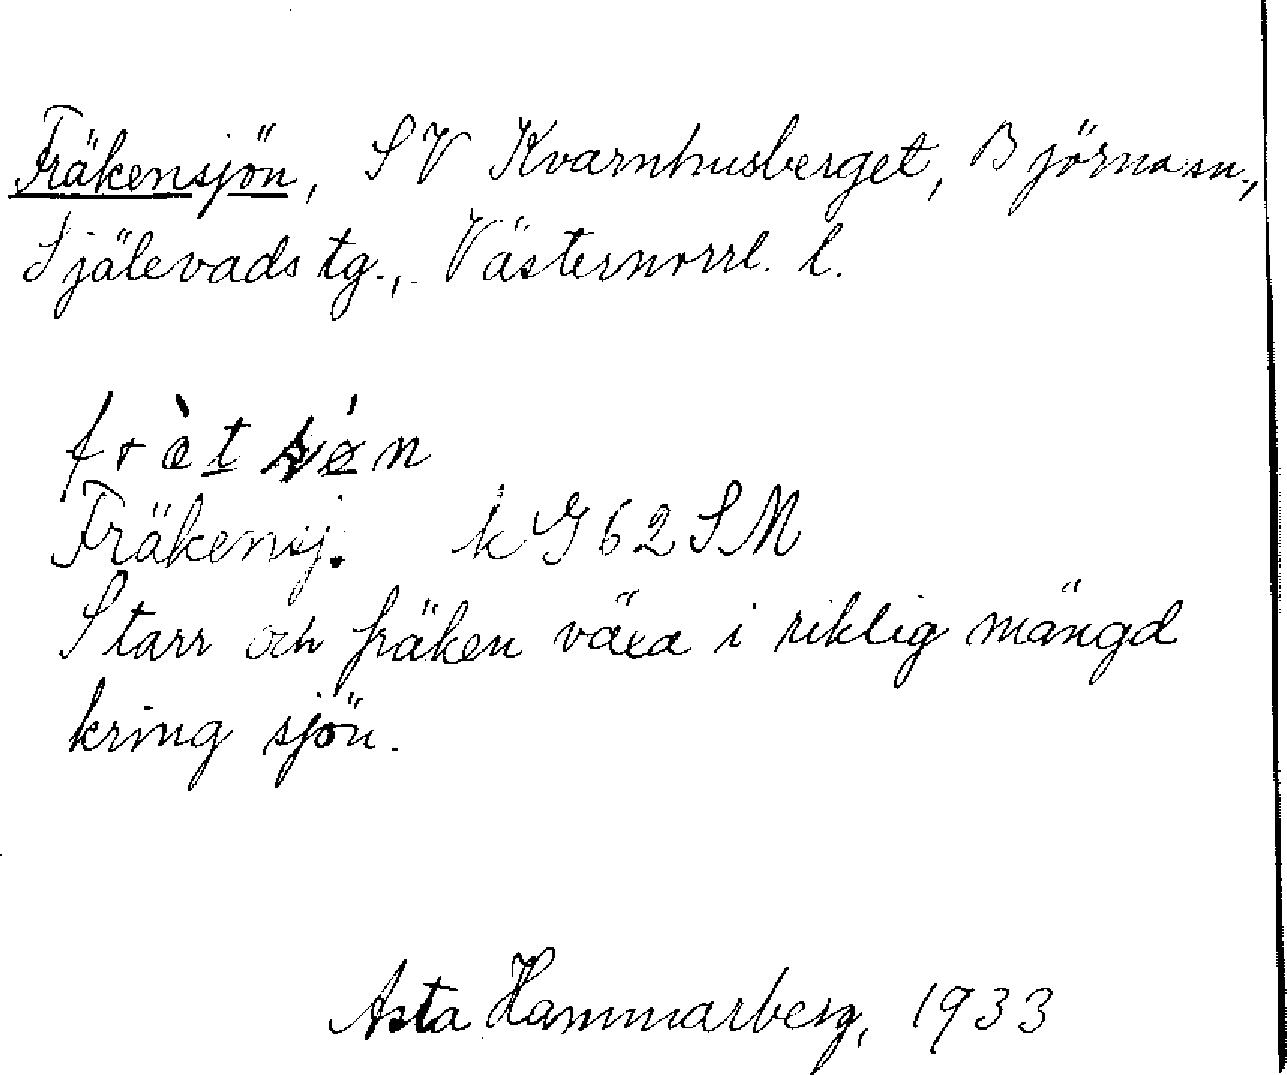 Fräkensjön, SV Kvarnhusberget, Björna sn.,
Själevads tg., Västernorrl. l.
Fräkensj. k G 62 SM
Starr och fräken växa i riklig mängd
kring sjön.
Asta Hammarberg, 1933